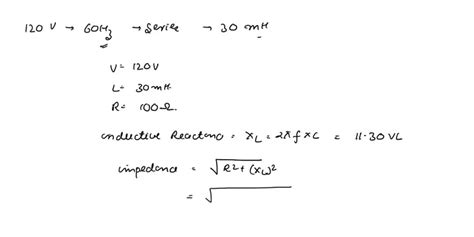 120 V → 60Hz → Series → 30 mH
V = 120V
L = 30mH
R = 100Ω
inductive Reactance = XL = 2πf×L = 11.30 VL
impedance = √R²+(XL)²
= √